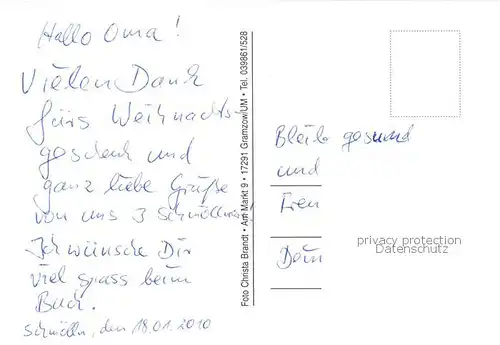 Hallo Oma!
Vielen Dank
fürs Weihnachts-
geschenk und
ganz liebe Grüße
von uns 3 Schmöllnern!
Ich wünsche Dir
viel spass beim
Buch.
Schmölln, den 18.01.2010
Foto Christa Brandt • Am Markt 9 • 17291 Gramzow/UM • Tel. 039861/528
Bleib gesund
und
Dein
privacy protection
Datenschutz